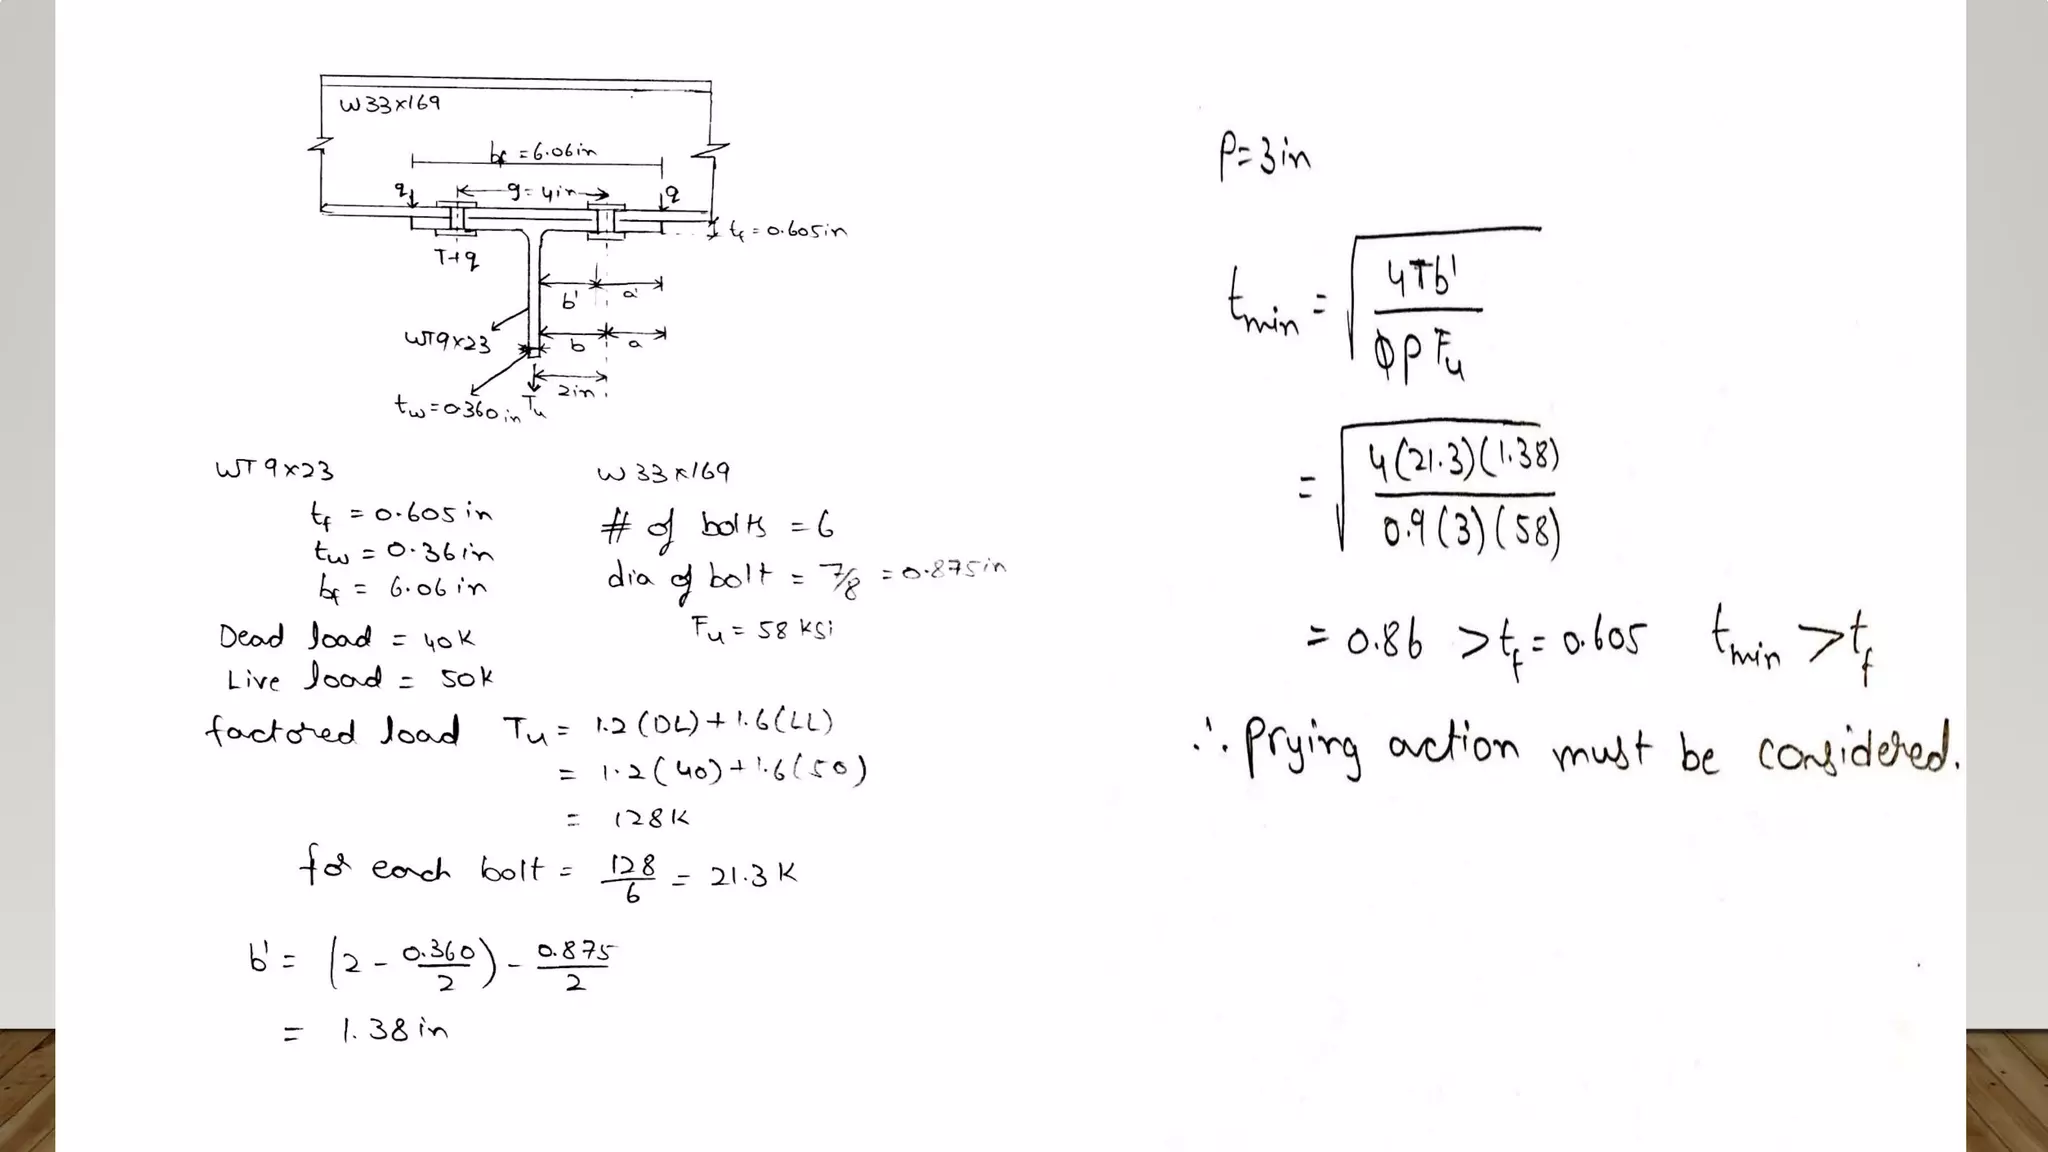 W33x169
bf = 6.06in
q
g = 4in
q
tf = 0.605in
T+q
b' a'
WT9x23
b a
2in.
tw = 0.360in Tu
WT 9x23
tf = 0.605 in
tw = 0.36 in
bf = 6.06 in
Dead load = 40K
Live load = 50K
W 33x169
# of bolts = 6
dia of bolt = 7/8 = 0.875 in
Fu = 58 ksi
factored load Tu = 1.2 (DL) + 1.6 (LL)
= 1.2 (40) + 1.6 (50)
= 128K
for each bolt = 128/6 = 21.3 K
b' = (2 - 0.360/2) - 0.875/2
= 1.38 in
P = 3 in
tmin = √(4Tb'/ϕPFu)
= √(4(21.3)(1.38)/0.9(3)(58))
= 0.86 > tf = 0.605 tmin > tf
∴ Prying action must be considered.